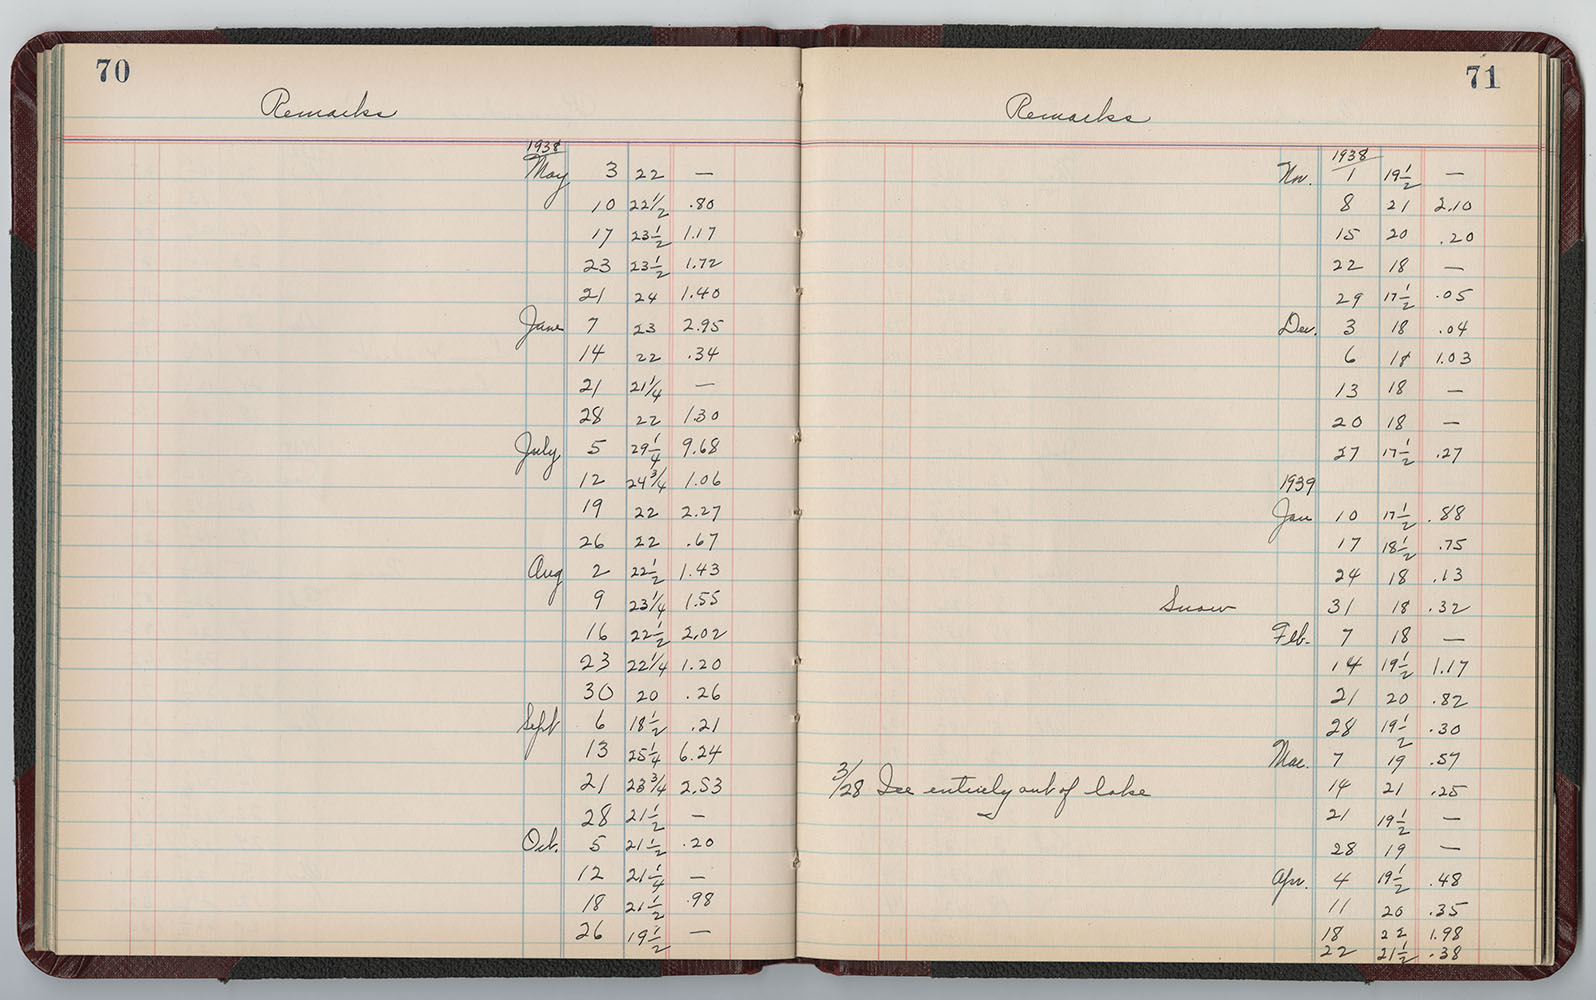 70
Remarks
1938
May 3 22 —
10 22 1/2 .80
17 23 1/2 1.17
23 23 1/2 1.72
21 24 1.40
June 7 23 2.95
14 22 .34
21 21 1/4 —
28 22 1.30
July 5 29 1/4 9.68
12 24 3/4 1.06
19 22 2.27
26 22 .67
Aug 2 22 1/2 1.43
9 23 1/4 1.55
16 22 1/2 2.02
23 22 1/4 1.20
30 20 .26
Sept 6 18 1/2 .21
13 25 1/4 6.24
21 23 3/4 2.53
28 21 1/2 —
Oct. 5 21 1/2 .20
12 21 1/4 —
18 21 1/2 .98
26 19 1/2 —
71
Remarks
1938
Nov. 1 19 1/2 —
8 21 2.10
15 20 .20
22 18 —
29 17 1/2 .05
Dec. 3 18 .04
6 18 1.03
13 18 —
20 18 —
27 17 1/2 .27
1939
Jan 10 17 1/2 .88
17 18 1/2 .75
24 18 .13
Snow 31 18 .32
Feb. 7 18 —
14 19 1/2 1.17
21 20 .82
28 19 1/2 .30
Mar. 7 19 .57
3/28 Ice entirely out of lake 14 21 .25
21 19 1/2 —
28 19 —
Apr. 4 19 1/2 .48
11 20 .35
18 22 1.98
22 21 1/2 .38